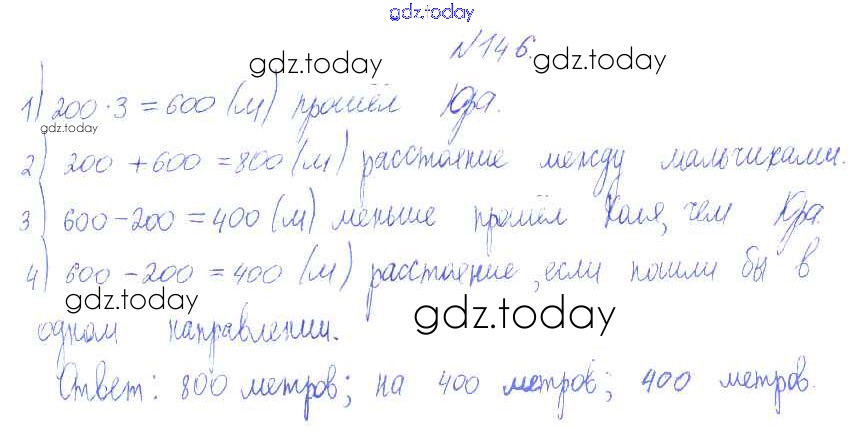 gdz.today
№146.
gdz.today gdz.today
1) 200·3=600 (м) прошёл Юра.
gdz.today
2) 200+600=800 (м) расстояние между мальчиками.
3) 600-200=400 (м) меньше прошёл Коля, чем Юра.
4) 600-200=400 (м) расстояние, если пошли бы в
gdz.today gdz.today
одном направлении.
Ответ: 800 метров; на 400 метров; 400 метров.